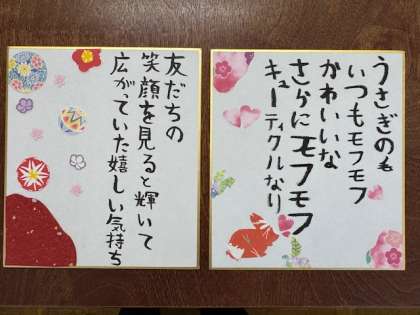 うさぎのも
いつもモフモフ
かわいいな
さらにモフモフ
キューティクルなり
友だちの
笑顔を見ると輝いて
広がていた嬉しい気持ち